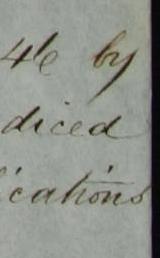 46 by
diced
ications